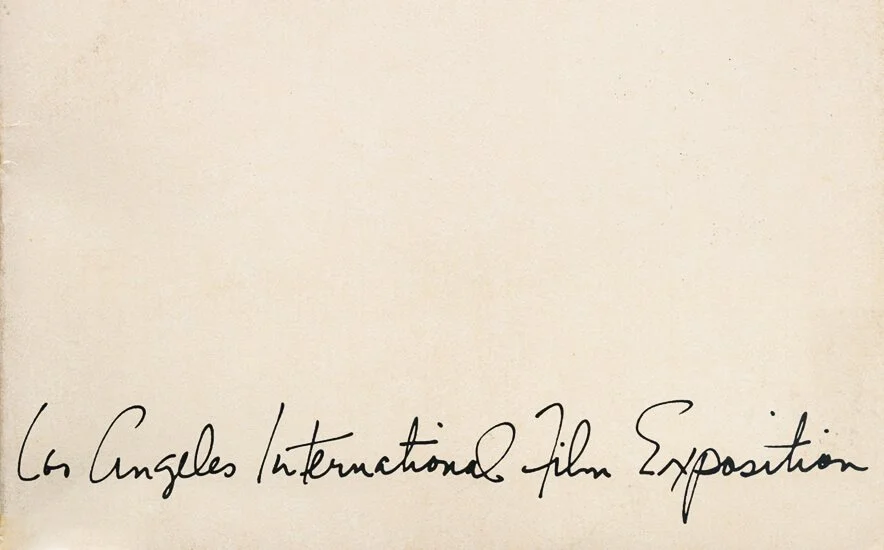 Los Angeles International Film Exposition